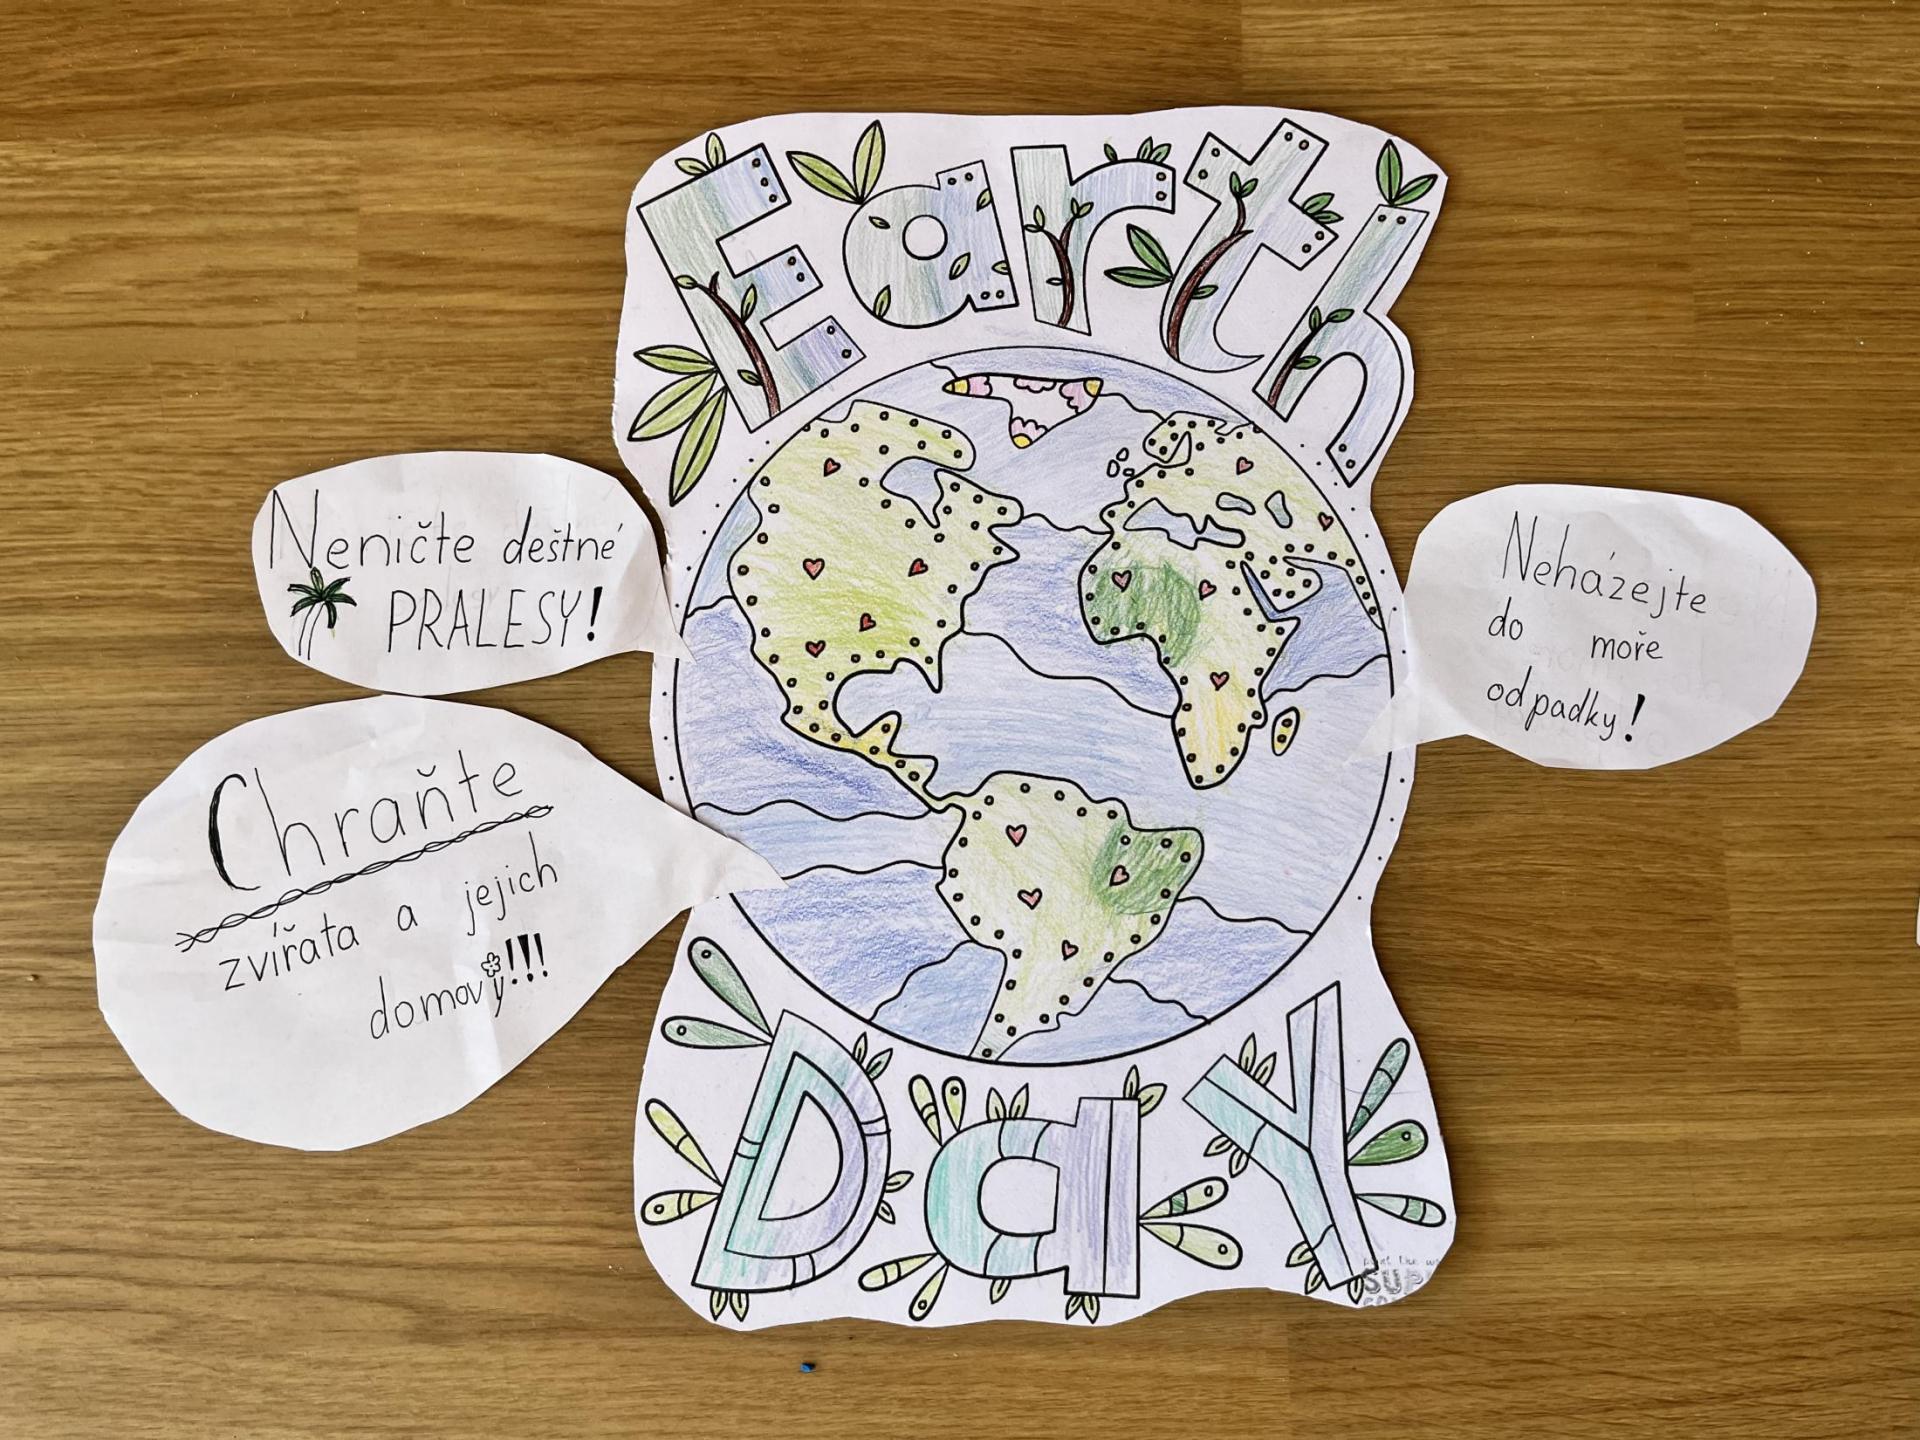 Earth
Neničte deštné
PRALESY!
Neházejte
do moře
odpadky!
Chraňte
zvířata a jejich
domovy!!!
Day